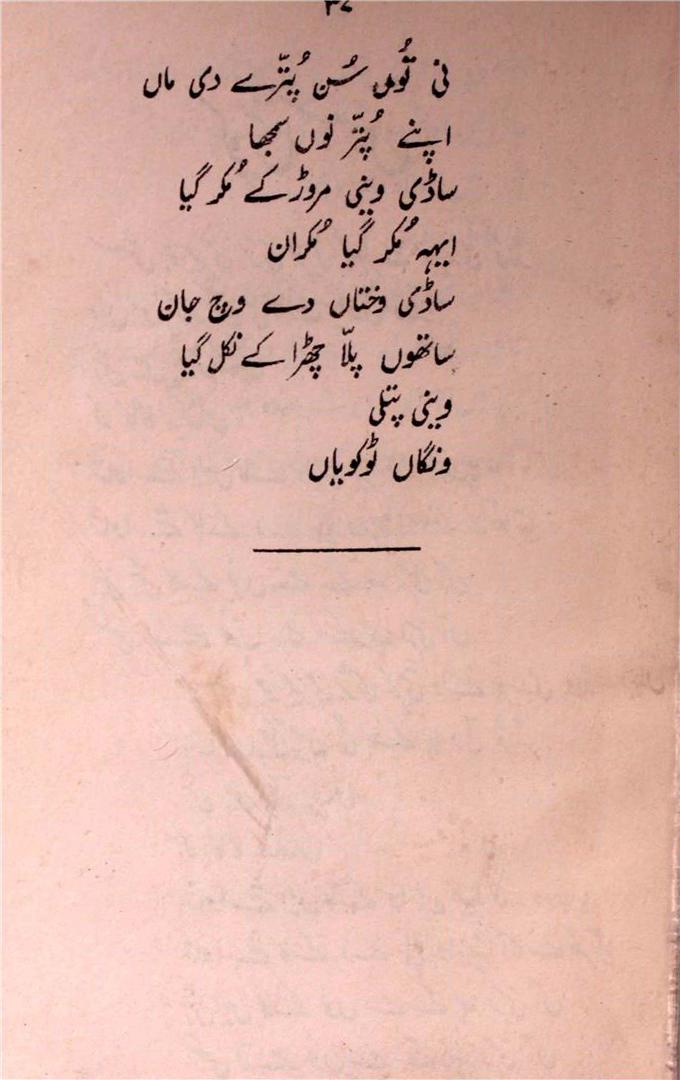 ۳۷
نی تُوں سُن پُتّرے دی ماں
اپنے پُتّر نوں سمجھا
ساڈی وینی مروڑ کے مُکر گیا
ایہہ مُکر گیا مُکران
ساڈی وختاں دے وچ جان
ساتھوں پلّا چھڑا کے نکل گیا
وینی پتلی
ونگاں ٹوکویاں